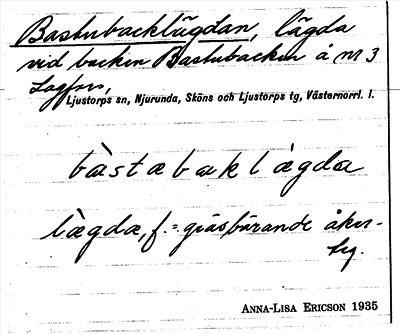 Bastubacklägdan, lägda
vid backen Bastubacken å nr 3
Ljustorps sn, Njurunda, Sköns och Ljustorps tg, Västernorrl. l.
bàstabaklàgda
làgda, f. = gräsbärande åker-
ty.
ANNA-LISA ERICSON 1935